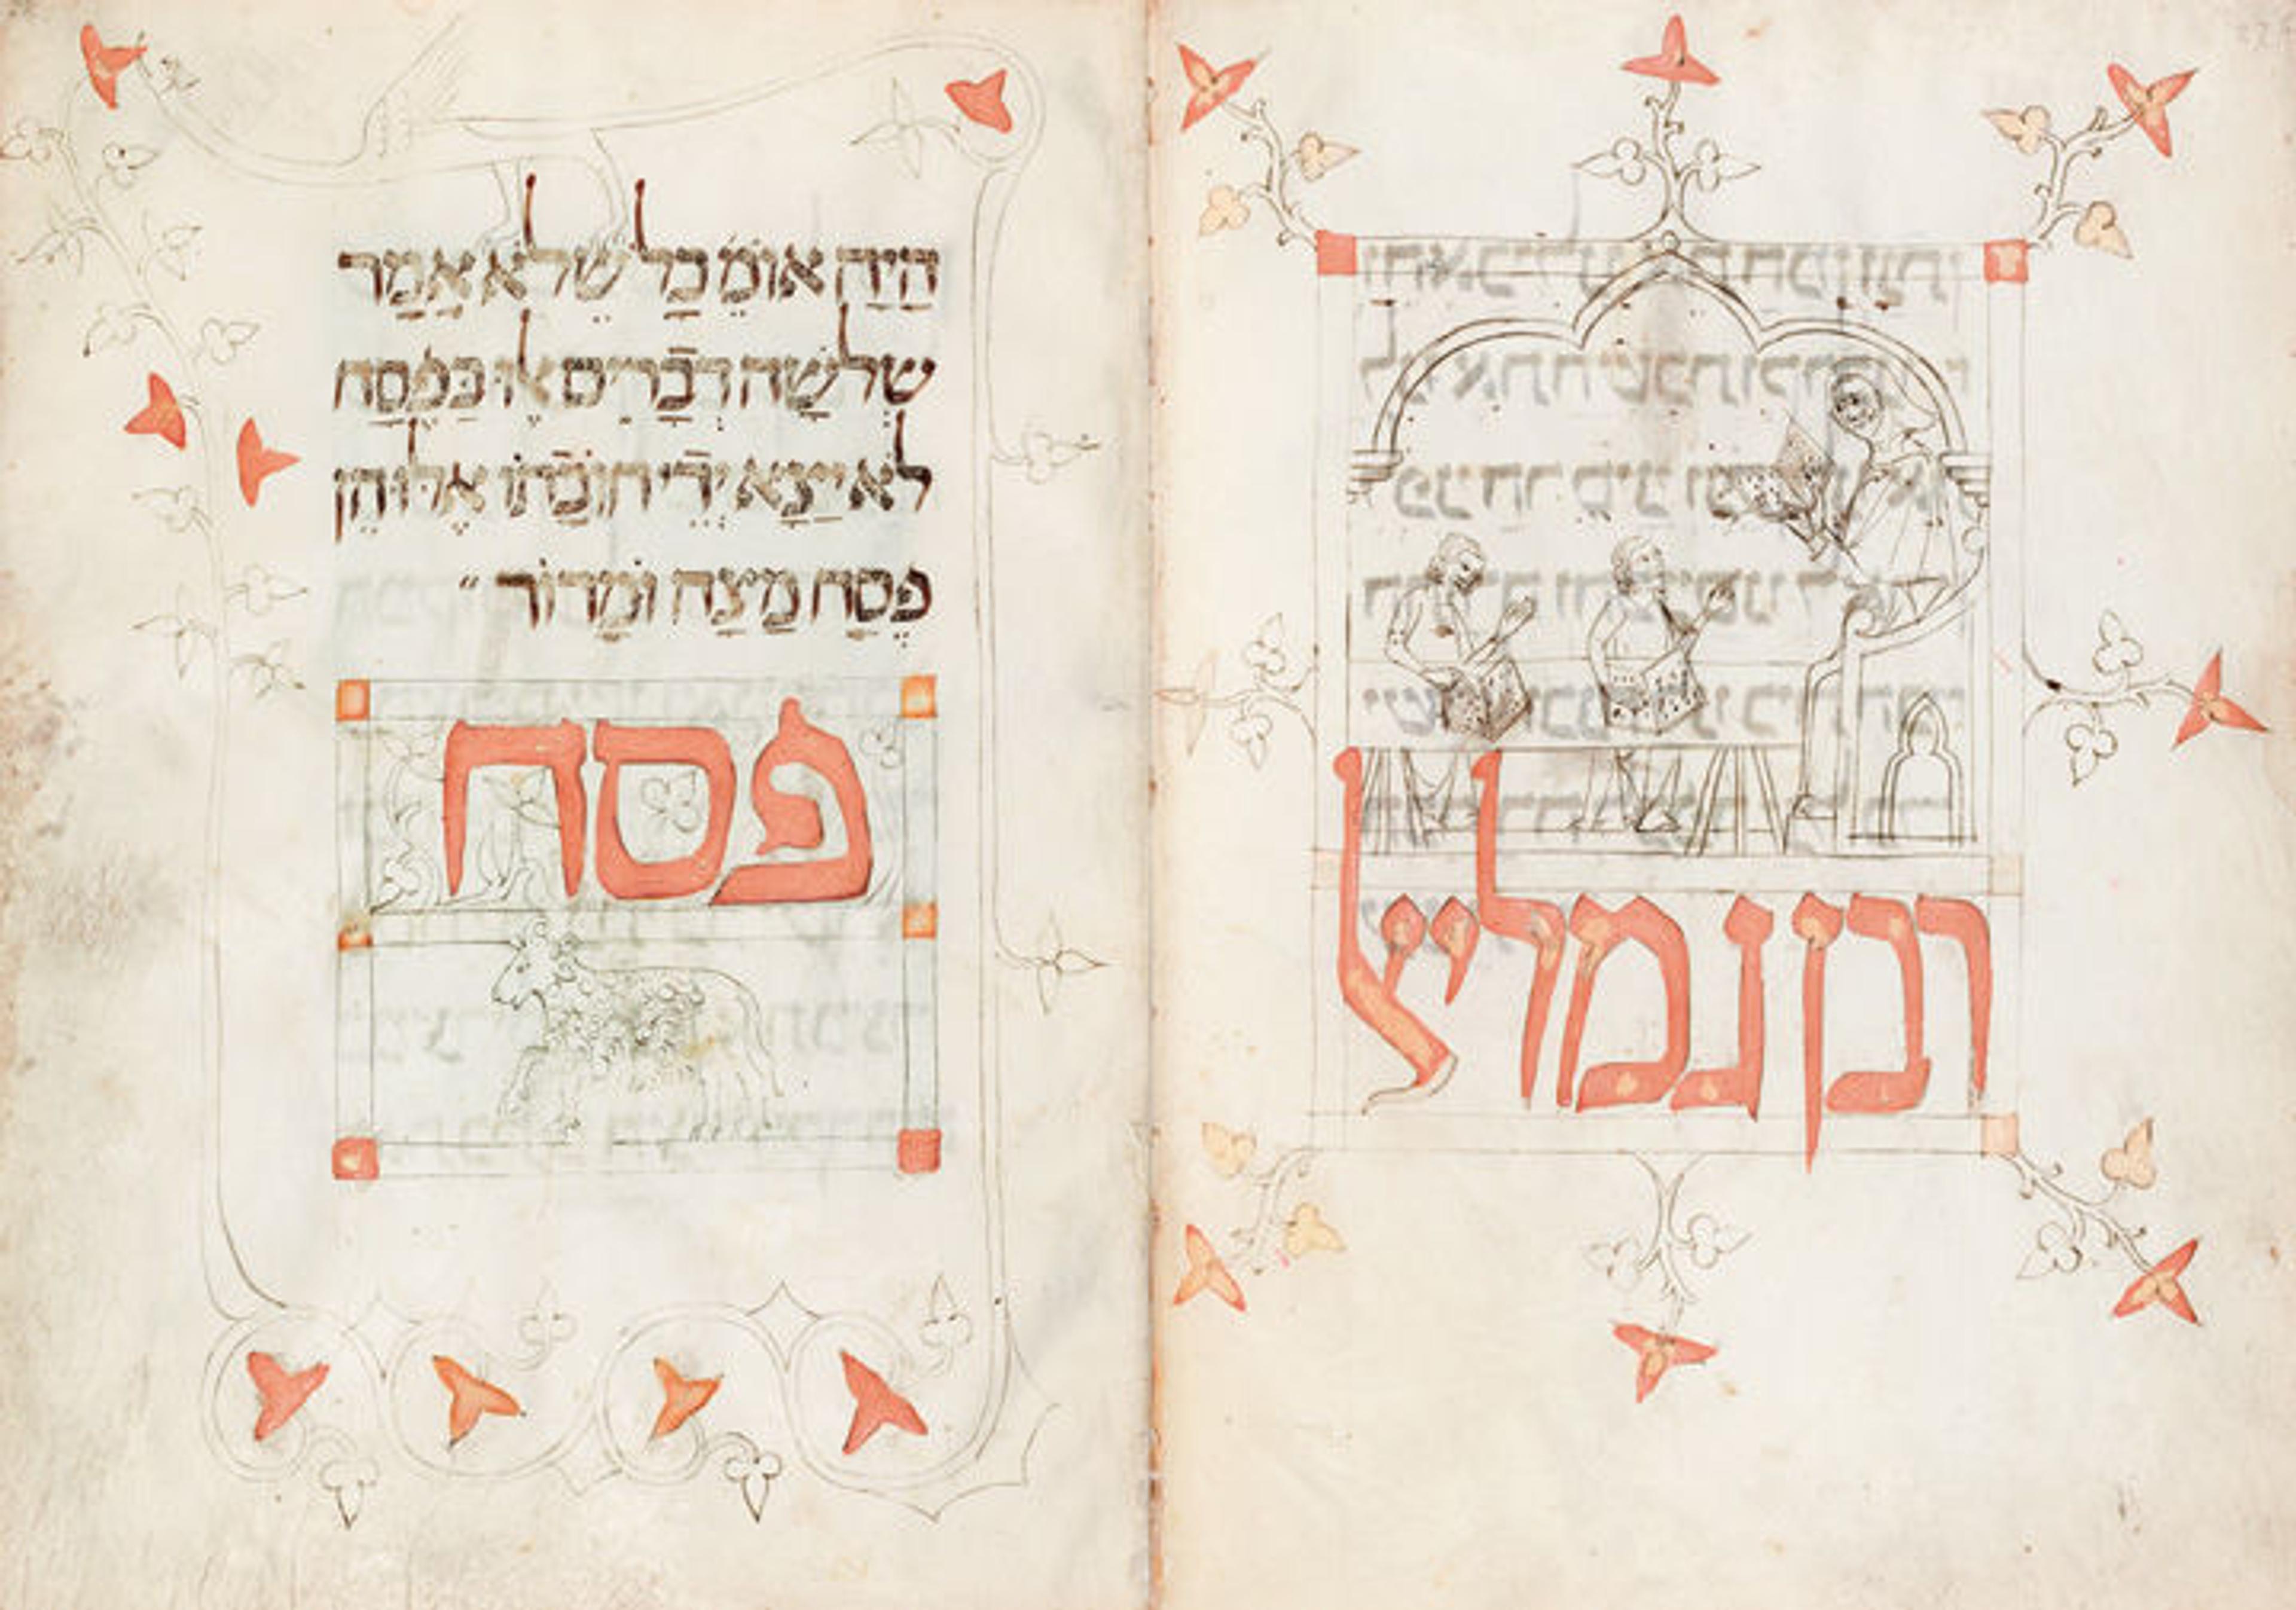 רבן גמליאל
היה אומ כל שלא אמר
שלשה דברים אלו בפסח
לא יצא ידי חובתו אלו הן
פסח מצה ומרור
פסח